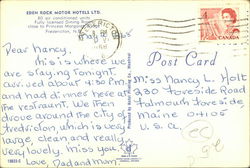 EDEN ROCK MOTOR HOTELS LTD.
80 air conditioned units
Fully licensed Dining Room
close to Princess Margaret
Fredericton, N.B.
FREDERICTON
CANADA
Post Card
Dear Nancy,
this is where we
are staying tonight.
arrived about 4:30 P.M.
and had dinner here at
the restaurant. We then
drove around the city of
Fredericton, which is very
large, clean and really
very lovely. Miss you.
Love, Dad and Mom
Miss Nancy L. Holt
230 Foreside Road
Falmouth Foreside
Maine 04105
U.S.A.